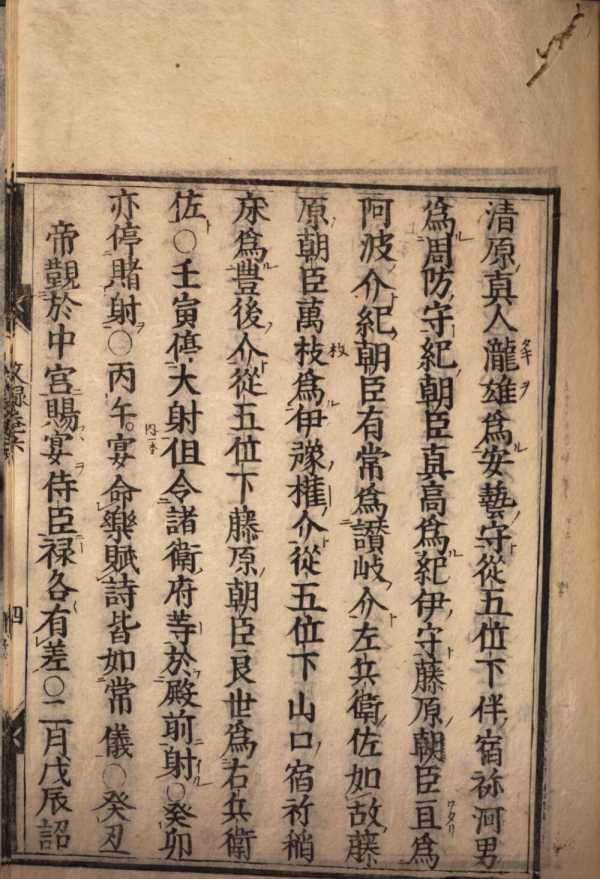 清原真人瀧雄為安藝守從五位下伴宿祢河男
為周防守紀朝臣真高為紀伊守藤原朝臣亘為
阿波介紀朝臣有常為讃岐介左兵衛佐如故藤
原朝臣萬枝為伊豫權介從五位下山口宿祢稍
床為豐後介從五位下藤原朝臣良世為右兵衛
佐○壬寅停大射但令諸衛府等於殿前射○癸卯
亦停賭射○丙午宴命樂賦詩皆如常儀○癸丑
帝覲於中宮賜宴侍臣禄各有差○二月戊辰詔